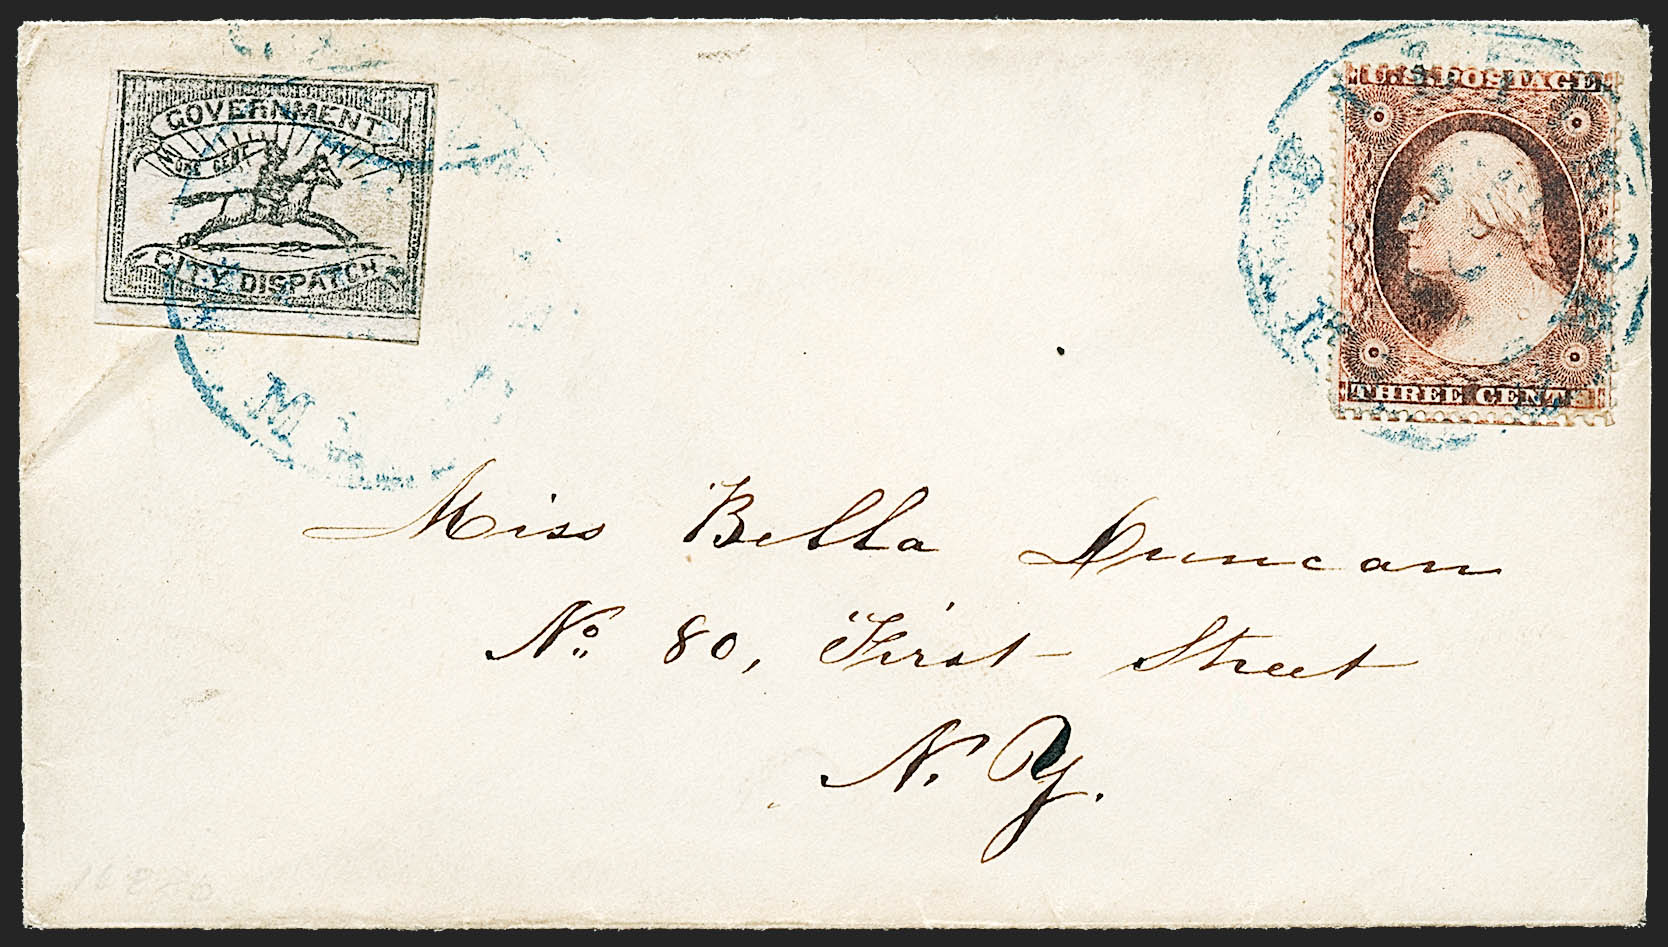 GOVERNMENT
ONE CENT
CITY DISPATCH
U.S. POSTAGE
THREE CENTS
Miss Bella Duncan
No. 80, First Street
N. Y.